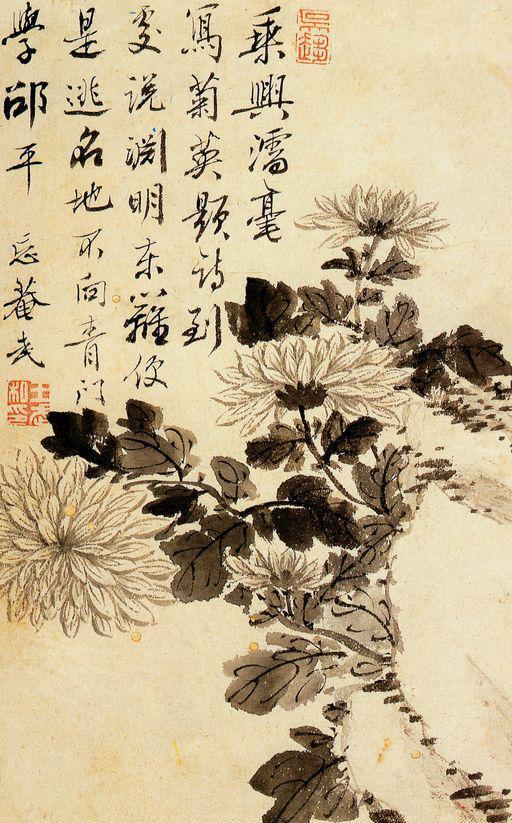 乘興濡毫
寫菊英題詩到
處說淵明東籬便
是逃名地不向青門
學邵平 忘菴武